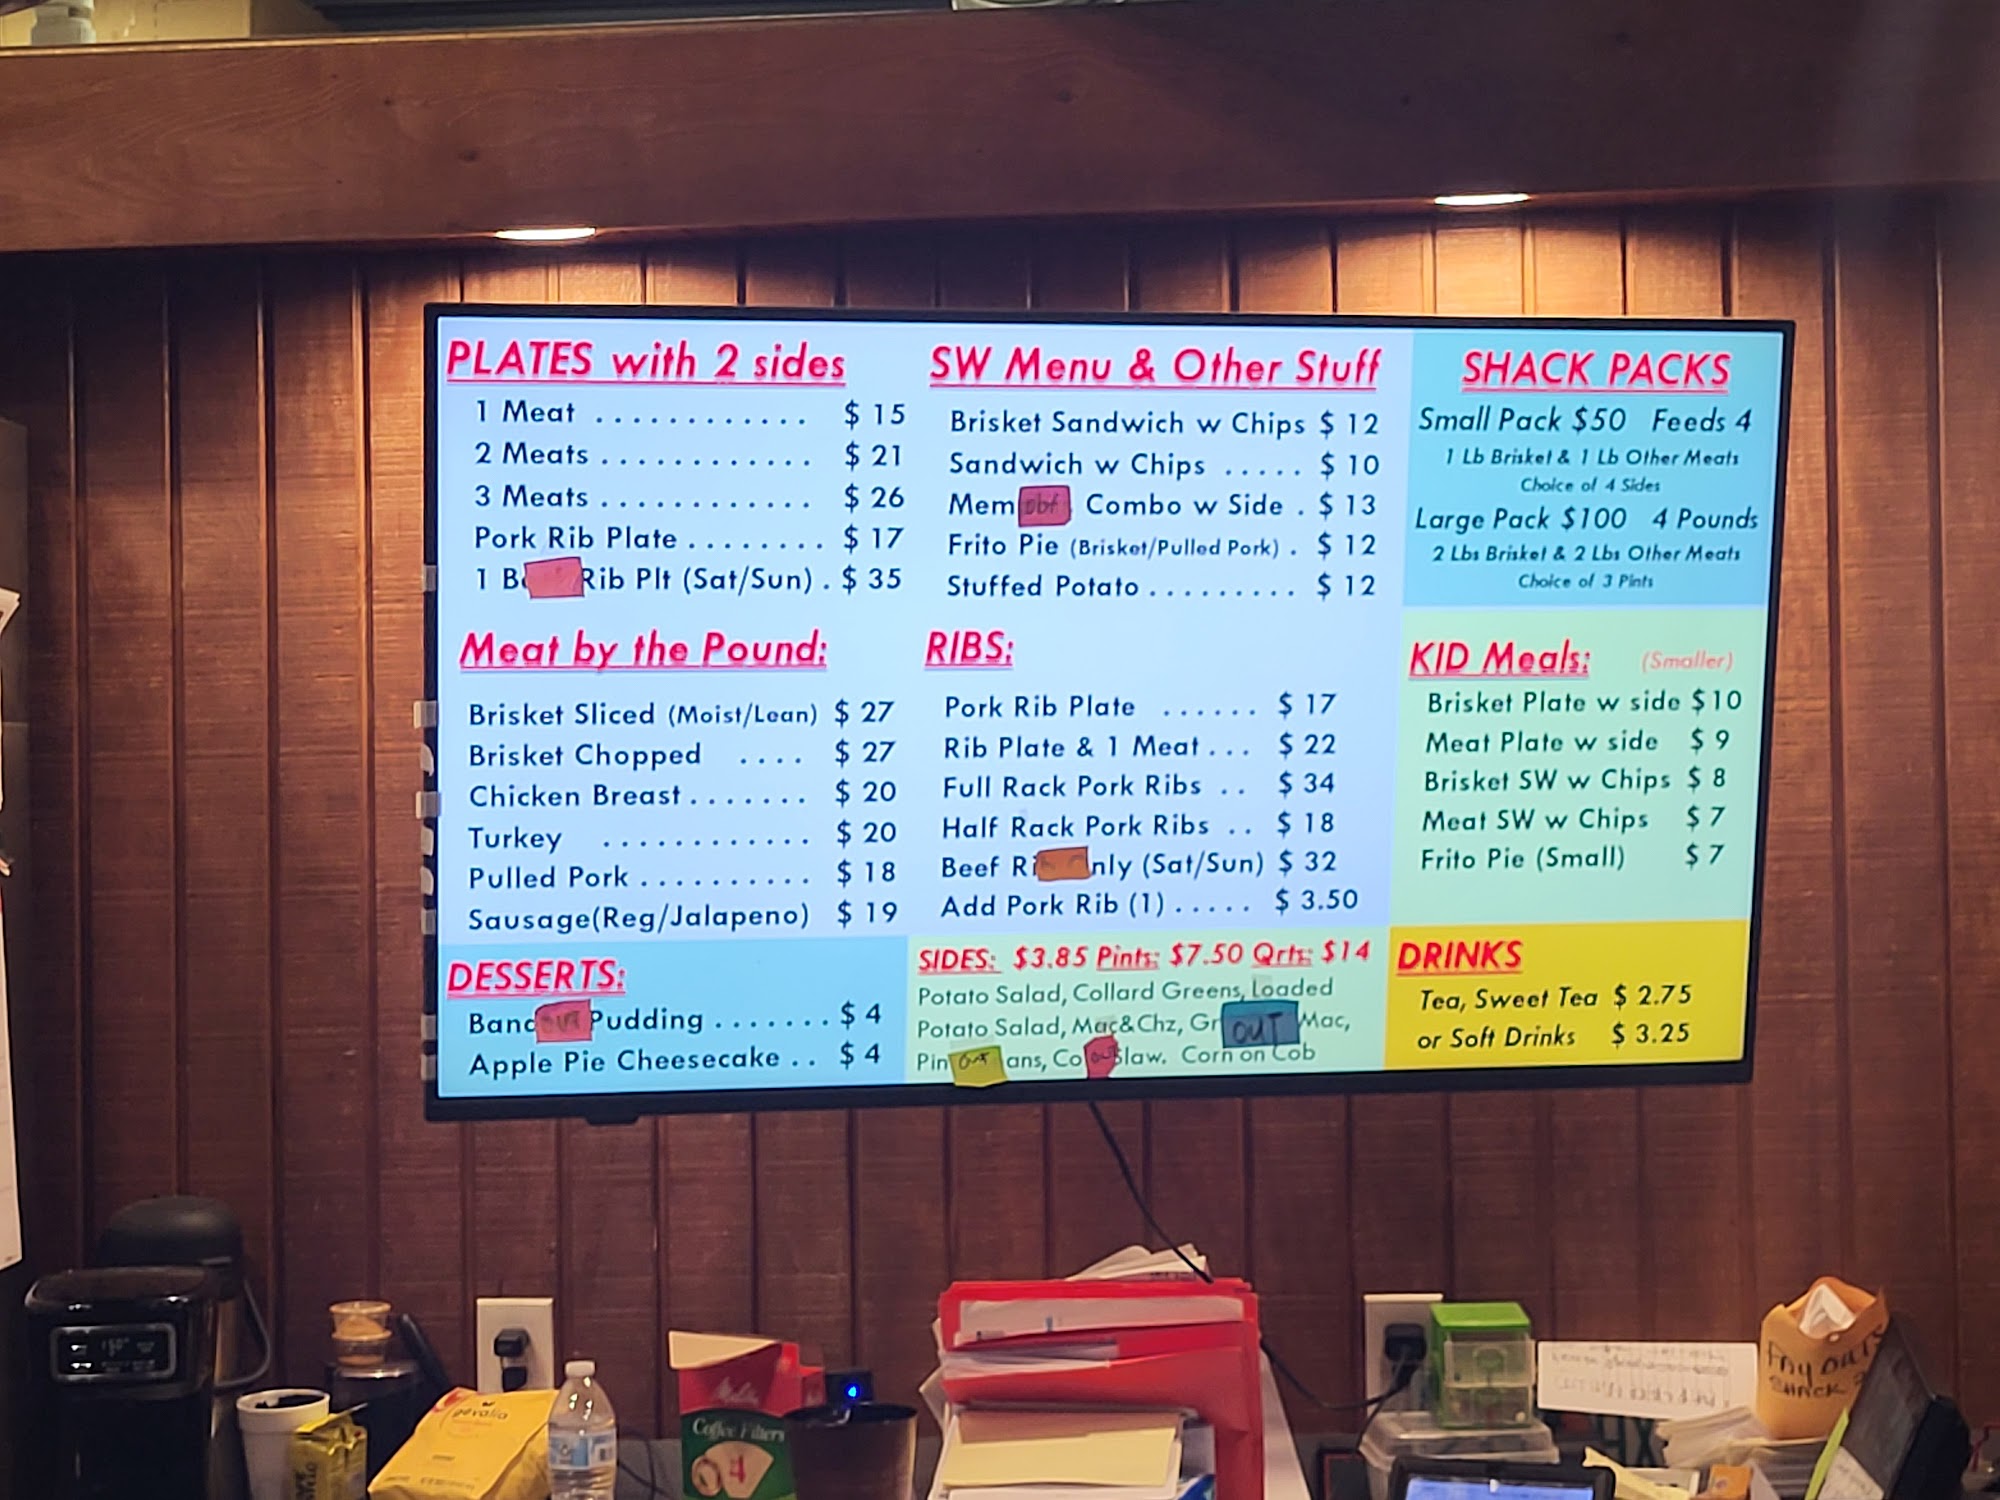 PLATES with 2 sides
1 Meat ............ $ 15
2 Meats ............ $ 21
3 Meats ............ $ 26
Pork Rib Plate ........ $ 17
1 Rib Plt (Sat/Sun) . $ 35
Meat by the Pound:
Brisket Sliced (Moist/Lean) $ 27
Brisket Chopped .... $ 27
Chicken Breast ....... $ 20
Turkey ............ $ 20
Pulled Pork .......... $ 18
Sausage(Reg/Jalapeno) $ 19
DESSERTS:
Pudding ....... $ 4
Apple Pie Cheesecake .. $ 4
SW Menu & Other Stuff
Brisket Sandwich w Chips $ 12
Sandwich w Chips ..... $ 10
Mem Combo w Side . $ 13
Frito Pie (Brisket/Pulled Pork) . $ 12
Stuffed Potato ......... $ 12
RIBS:
Pork Rib Plate ...... $ 17
Rib Plate & 1 Meat ... $ 22
Full Rack Pork Ribs .. $ 34
Half Rack Pork Ribs .. $ 18
Beef (Sat/Sun) $ 32
Add Pork Rib (1) ..... $ 3.50
SIDES: $3.85 Pints: $7.50 Qrts: $14
Potato Salad, Collard Greens, Loaded
Potato Salad, Mac&Chz, Gr OUT Mac,
Pin out ans, Co out slaw. Corn on Cob
SHACK PACKS
Small Pack $50 Feeds 4
1 Lb Brisket & 1 Lb Other Meats
Choice of 4 Sides
Large Pack $100 4 Pounds
2 Lbs Brisket & 2 Lbs Other Meats
Choice of 3 Pints
KID Meals: (Smaller)
Brisket Plate w side $ 10
Meat Plate w side $ 9
Brisket SW w Chips $ 8
Meat SW w Chips $ 7
Frito Pie (Small) $ 7
DRINKS
Tea, Sweet Tea $ 2.75
or Soft Drinks $ 3.25
gevalia
Melitta
Coffee Filters
4
PAY OUTS
SHACK